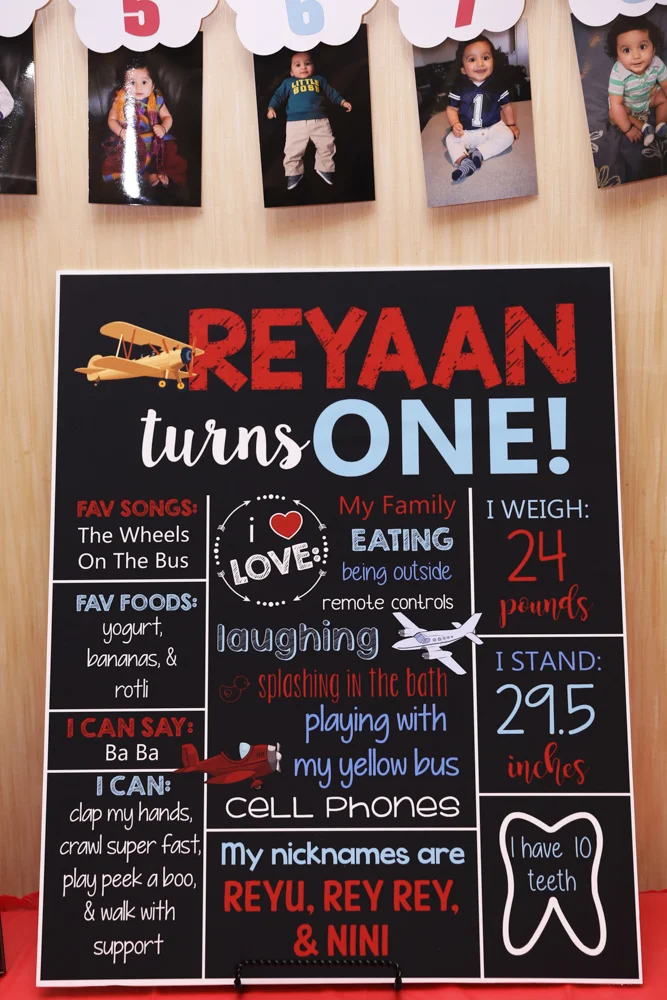 5 6 7
LITTLE
BOSS
1
REYAAN
turns ONE!
FAV SONGS:
The Wheels
On The Bus
FAV FOODS:
yogurt,
bananas, &
rotli
I CAN SAY:
Ba Ba
I CAN:
clap my hands,
crawl super fast,
play peek a boo,
& walk with
support
i
LOVE:
My Family
EATING
being outside
remote controls
laughing
splashing in the bath
playing with
my yellow bus
CELL PHONES
My nicknames are
REYU, REY REY,
& NINI
I WEIGH:
24
pounds
I STAND:
29.5
inches
I have 10
teeth